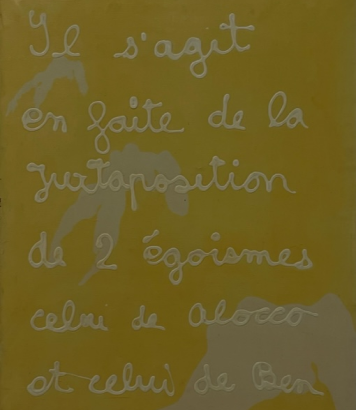 Il s'agit
en faite de la
juxtaposition
de 2 égoismes
celui de Alocco
et celui de Ben